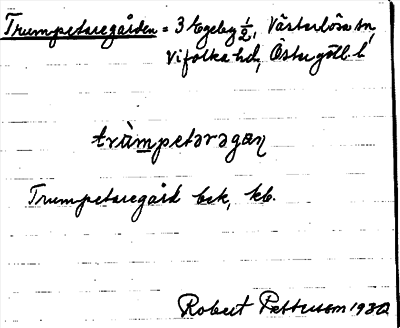 Trumpetaregården = 3 Egeby 1/2, Västerlösa sn
Vifolka hd, Östergötl. l.
tràmpetaragan
Trumpetaregård bek, kb.
Robert Pettersson 1930